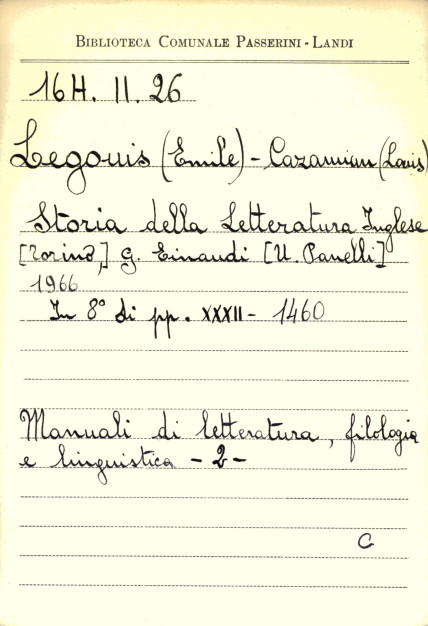 BIBLIOTECA COMUNALE PASSERINI - LANDI
16H. II. 26
Legouis (Emile) - Cazamian (Louis)
Storia della Letteratura Inglese
[Torino,] G. Einaudi [U. Panelli]
1966
In 8° di pp. XXXII - 1460
Manuali di letteratura, filologia
e linguistica - 2 -
C